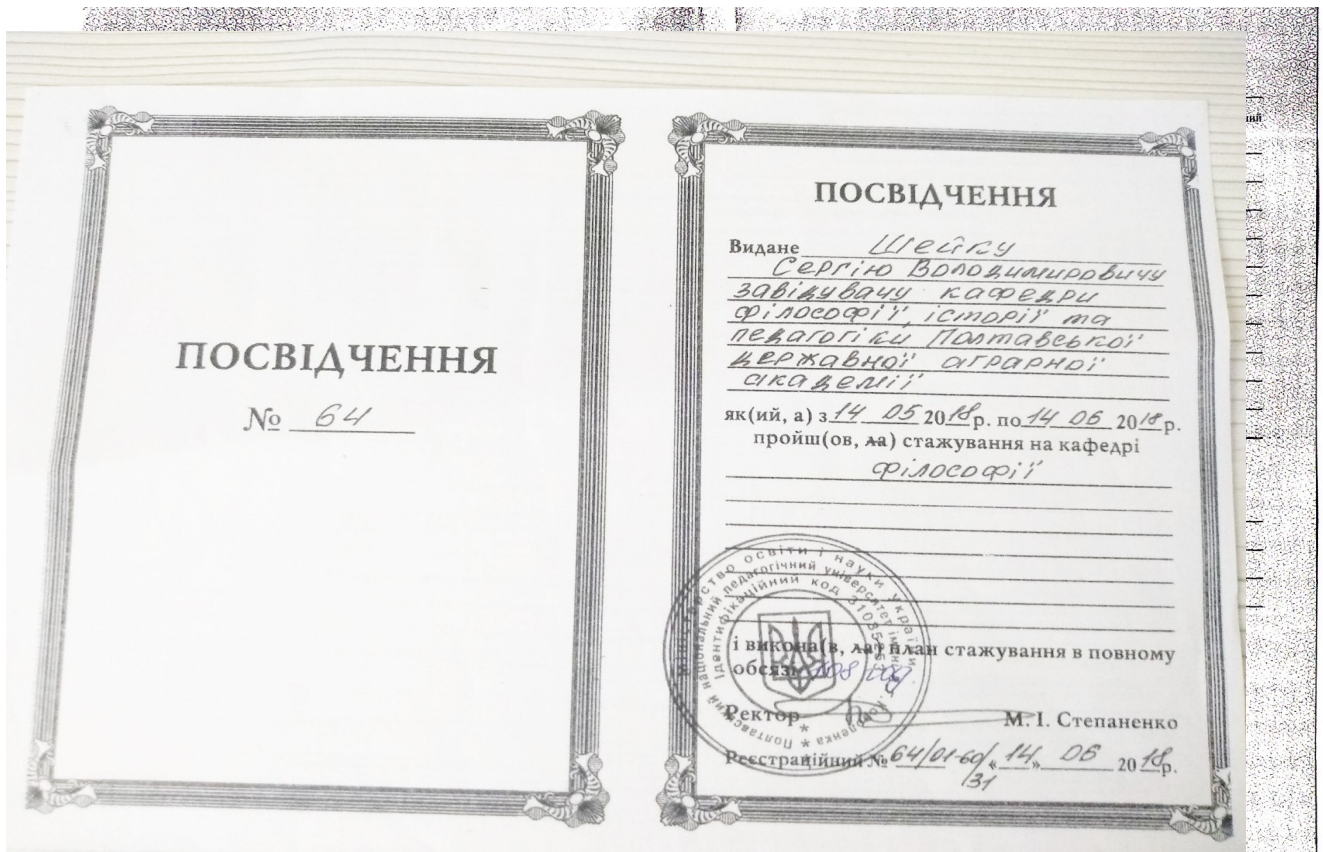 ПОСВІДЧЕННЯ
№ 64
ПОСВІДЧЕННЯ
Видане Шейку
Сергію Володимировичу
завідувачу кафедри
філософії, історії та
педагогіки Полтавської
державної аграрної
академії
як(ий, а) з 14 05 2018р. по 14 06 2018р.
пройш(ов, ла) стажування на кафедрі
філософії
і викона(в, ла) план стажування в повному
обсязі 108 год.
Ректор М. І. Степаненко
Реєстраційний № 64/01-60/31 «14» 06 2018р.
Міністерство освіти і науки України
Полтавський національний педагогічний університет імені В.Г.Короленка
Ідентифікаційний код